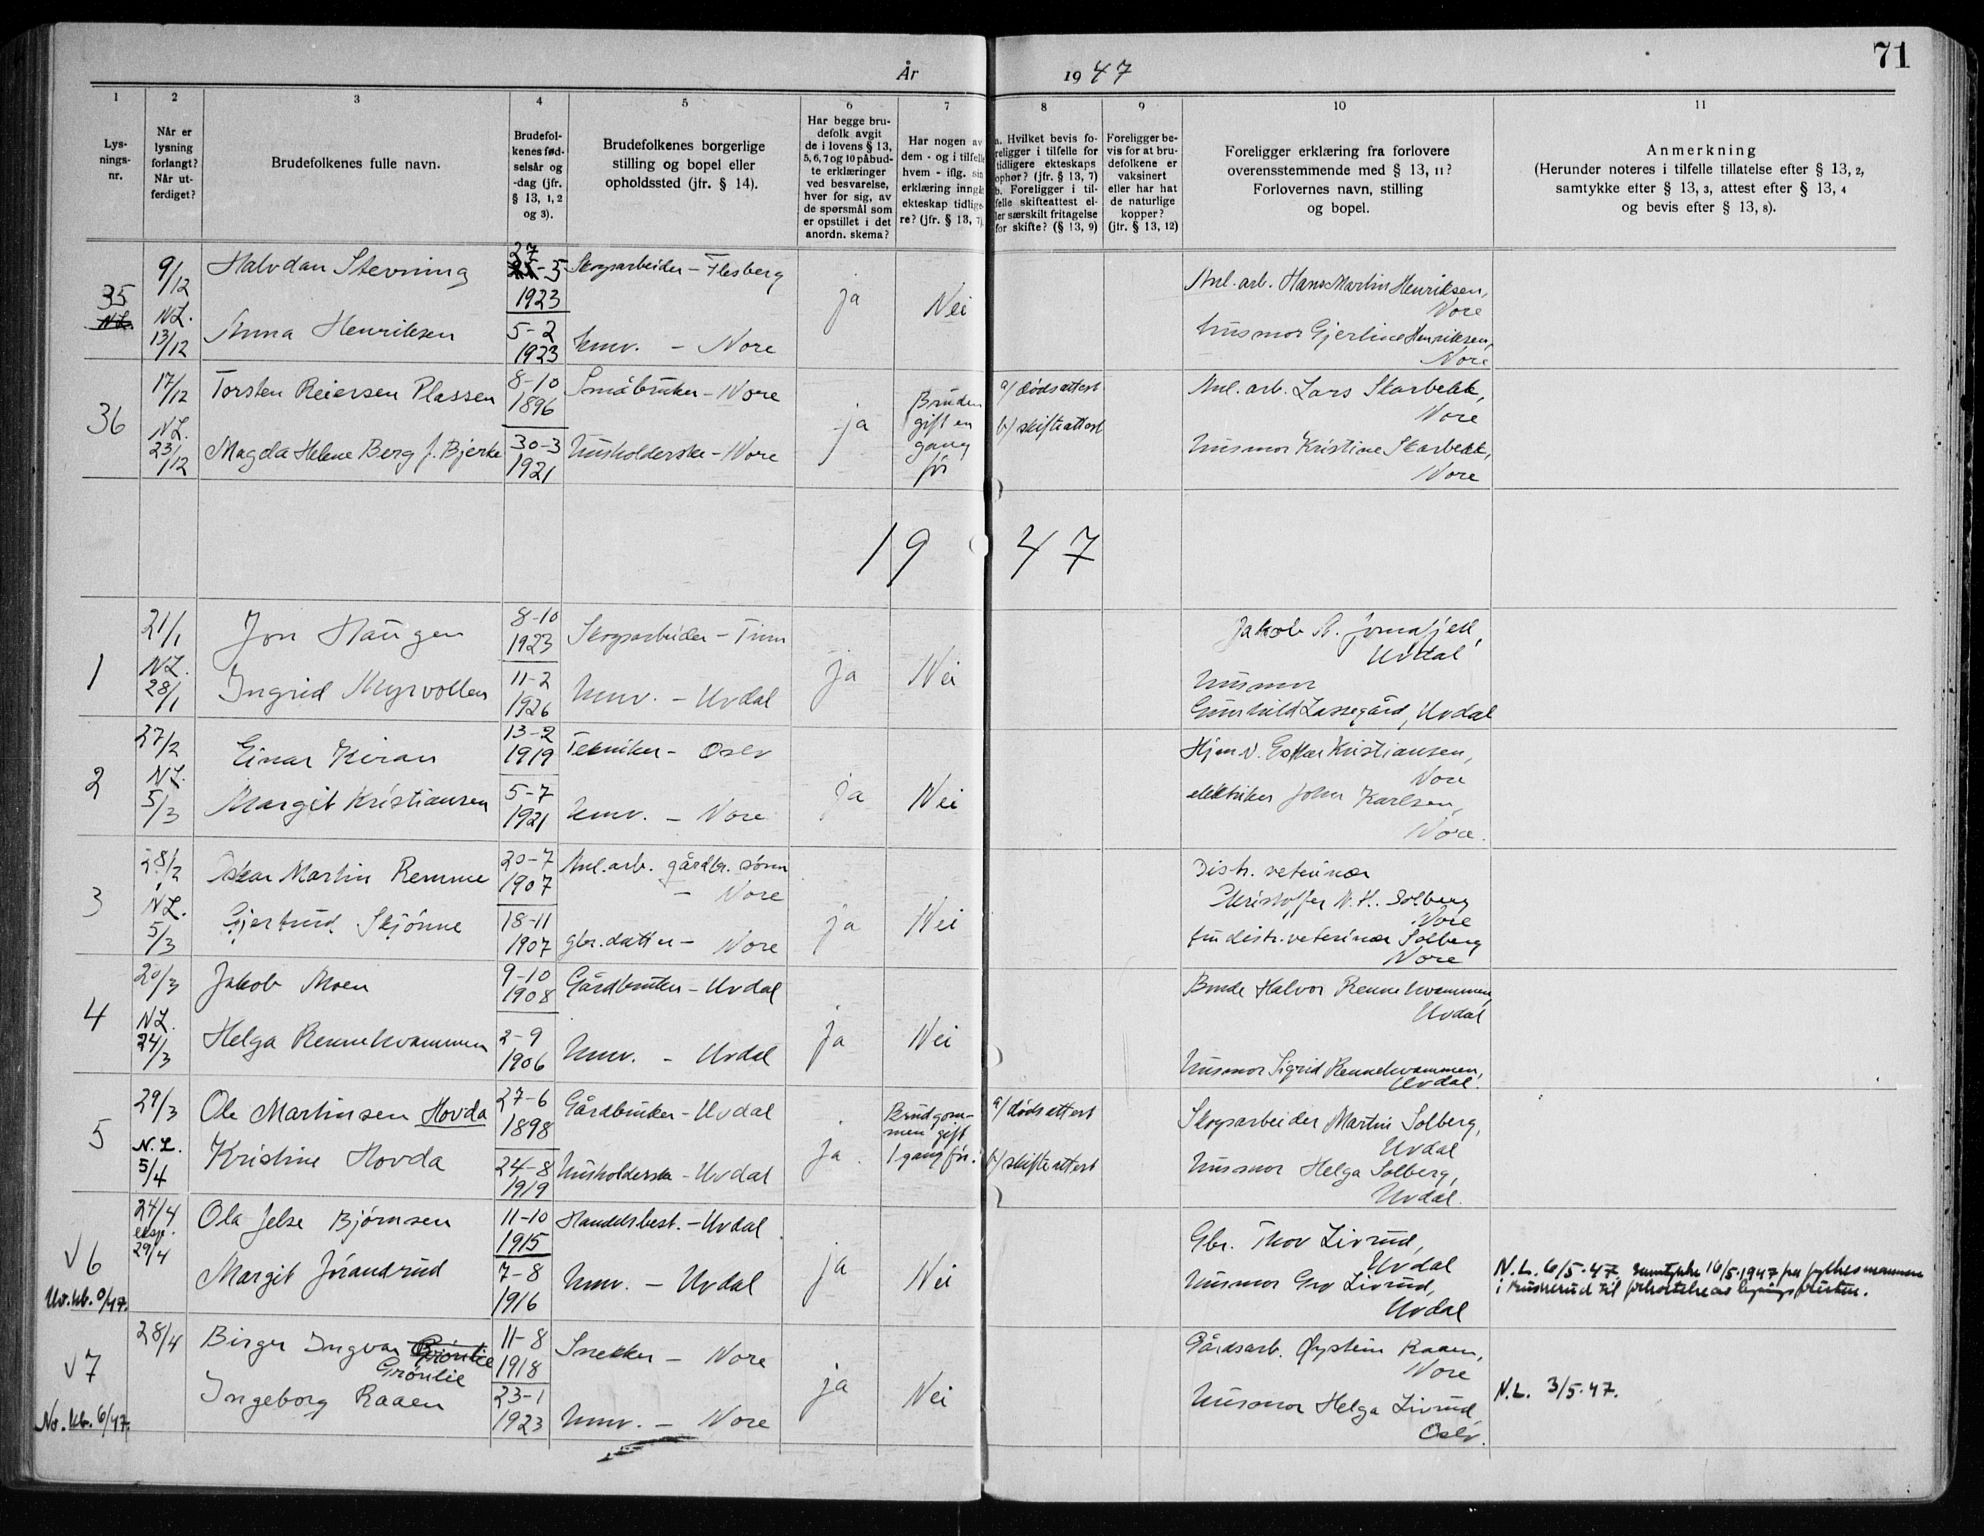 71
År 1947
1 2 3 4 5 6 7 8 9 10 11
Lys-
nings-
nr.
Når er
lysning
forlangt?
Når ut-
ferdiget?
Brudefolkenes fulle navn.
Brudefol-
kenes fød-
selsår og
-dag (jfr.
§ 13, 1, 2
og 3).
Brudefolkenes borgerlige
stilling og bopel eller
opholdssted (jfr. § 14).
Har begge bru-
defolk avgit
de i lovens § 13,
5, 6, 7 og 10 påbud-
te erklæringer
ved besvarelse,
hver for sig, av
de spørsmål som
er opstillet i det
anordn. skema?
Har nogen av
dem - og i tilfelle
hvem - iflg. sin
erklæring inngå
ekteskap tidlige-
re? (jfr. § 13, 7)
a. Hvilket bevis fo-
religger i tilfelle for
tidligere ekteskaps
ophør? (jfr. § 13, 7)
b. Foreligger i til-
felle skifteattest el-
ler særskilt fritagelse
for skifte? (§ 13, 9)
Foreligger be-
vis for at bru-
defolkene er
vaksinert
eller har hat
de naturlige
kopper?
(jfr. § 13, 12)
Foreligger erklæring fra forlovere
overensstemmende med § 13, 11?
Forlovernes navn, stilling
og bopel.
Anmerkning
(Herunder noteres i tilfelle tillatelse efter § 13, 2,
samtykke efter § 13, 3, attest efter § 13, 4
og bevis efter § 13, 8).
35
N.L.
9/12
N.L.
13/12
Halvdan Stevning
27
-5
1923
Skogsarbeider - Flesberg
ja
Nei
Anl. arb. Hans Martin Henriksen,
Nore
Anna Henriksen
5-2
1923
Umv. - Nore
Husmor Gjertine Henriksen,
Nore
36
17/12
N.L.
23/12
Torsten Reiersen Plassen
8-10
1896
Småbruker - Nore
ja
Bruden
gift en
gang
før
a/ dødsattest
b/ skifteattest
Anl. arb. Lars Skarbekk,
Nore
Magda Helene Berg f. Bjerke
30-3
1921
Husholderske - Nore
Husmor Kristine Skarbekk,
Nore
1947
1
21/1
N.L.
28/1
Jon Haugen
8-10
1923
Skogsarbeider - Tinn
ja
Nei
Jakob A. Jonsfjell,
Uvdal
Ingrid Myrvollen
11-2
1926
Umv. - Uvdal
Husmor
Gunhild Lassegård, Uvdal
2
27/2
N.L.
5/3
Einar Kiran
13-2
1919
Tekniker - Oslo
ja
Nei
Hjem.v. Eskar Kristiansen,
Nore
Margit Kristiansen
5-7
1921
Umv. - Nore
elektriker John Karlsen,
Nore.
3
28/2
N.L.
5/3
Oskar Martin Remme
20-7
1907
Anl. arb. gårdbr. sønn
- Nore
ja
Nei
Distr. veterinær
Kristoffer N. H. Solberg
Nore
Gjertrud Skjønne
18-11
1907
gbr. datter - Nore
fru distr. veterinær Solberg
Nore
4
20/3
N.L.
24/3
Jakob Moen
9-10
1908
Gårdbruker - Uvdal
ja
Nei
Bonde Halvor Rennehvammen,
Uvdal
Helga Rennehvammen
2-9
1906
Umv. - Uvdal
Husmor Sigrid Rennehvammen,
Uvdal
5
29/3
N.L.
5/4
Ole Martinsen Hovda
27-6
1898
Gårdbruker - Uvdal
ja
Brudgom-
men gift
1 gang før.
a/ dødsattest
b/ skifteattest
Skogsarbeider Martin Solberg,
Uvdal
Kristine Hovda
24-8
1919
Husholderske - Uvdal
Husmor Helga Solberg,
Uvdal.
√ 6
Uv. kb. 9/47.
24/4
eksp.
29/4
Ola Jelse Bjørnsen
11-10
1915
Handelsbest. - Uvdal
ja
Nei
Gbr. Thov Livrud,
Uvdal
Margit Jørandrud
7-8
1916
Umv. - Uvdal
Husmor Gro Livrud,
Uvdal
N.L. 6/5-47 samtykke 16/5.1947 fra fylkesmannen
i Buskerud til forkortelse av lysningsfristen.
√ 7
No. kb. 6/47.
28/4
Birger Ingvar Grønlie
Grønlie
11-8
1918
Snekker - Nore
ja
Nei
Gårdsarb. Øystein Raaen,
Nore
Ingeborg Raaen
23-1
1923
Umv. - Nore
Husmor Helga Livrud,
Oslo.
N.L. 3/5-47.